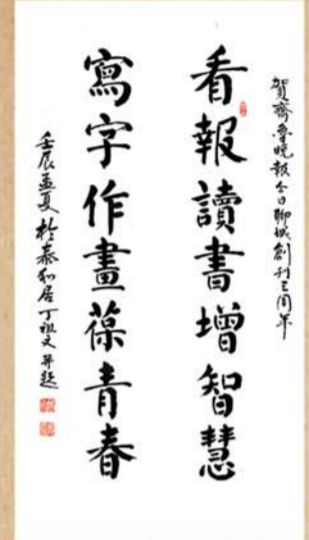 賀齊魯晚報今日聊城創刊三周年
看報讀書增智慧
寫字作畫葆青春
壬辰孟夏於泰和居丁祖文並題